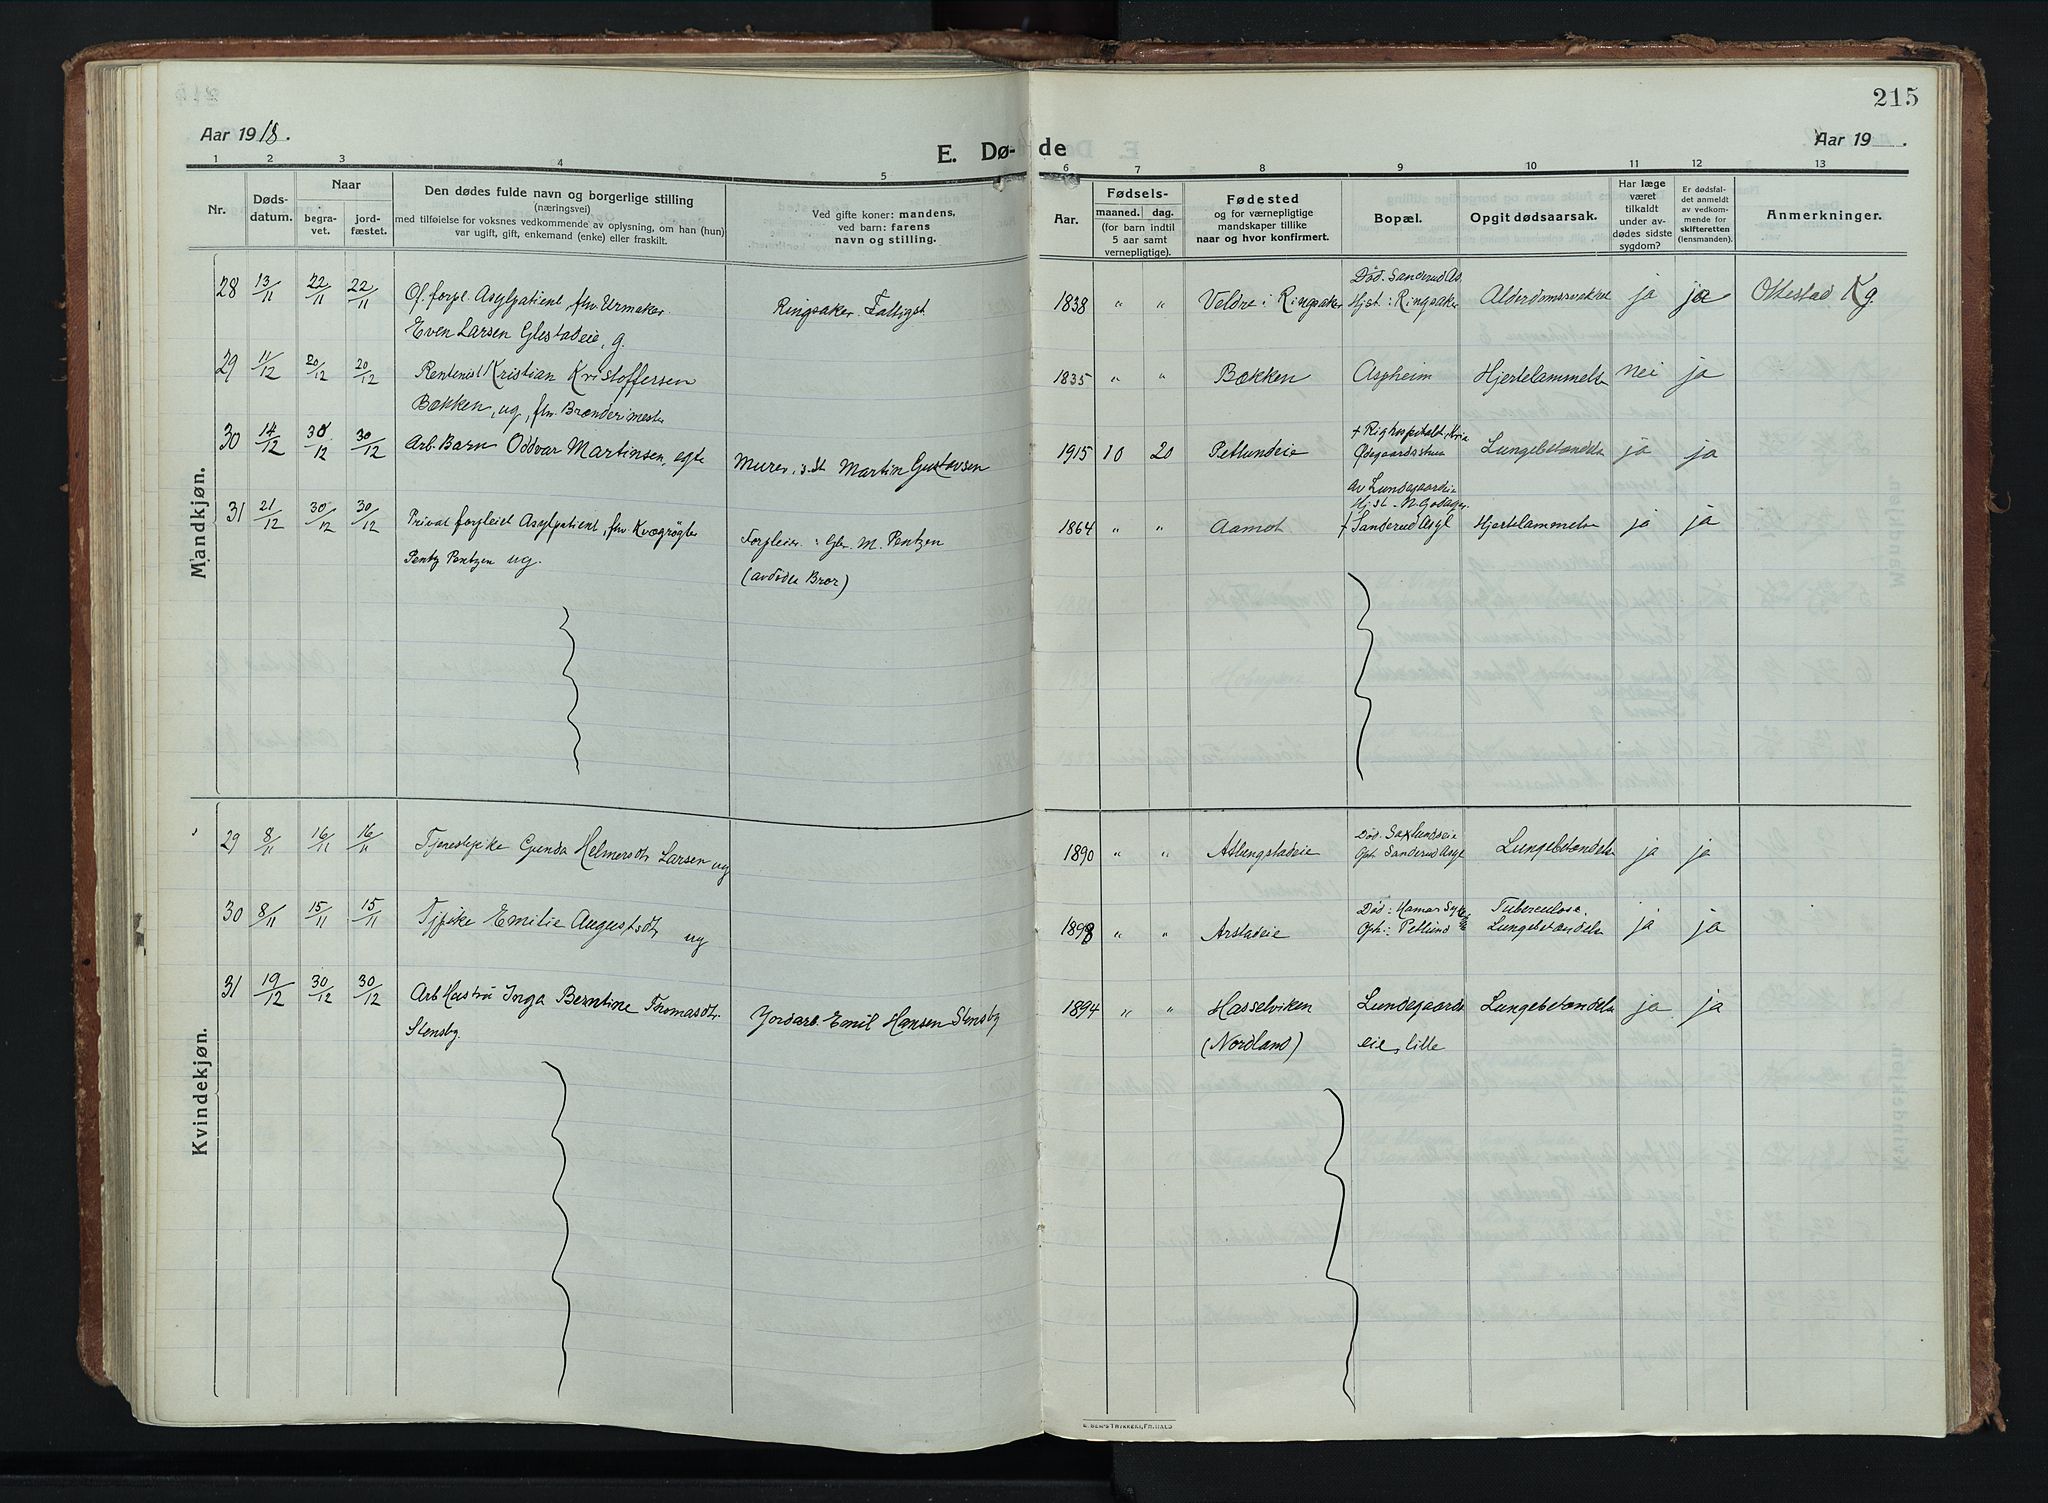 215
Aar 1918.
E. Dø-
de
Aar 19 .
1 2 3 4 5 6 7 8 9 10 11 12 13
Nr.
Døds-
datum.
Naar
begra-
vet.
jord-
fæstet.
Den dødes fulde navn og borgerlige stilling
(næringsvei)
med tilføielse for voksnes vedkommende av oplysning, om han (hun)
var ugift, gift, enkemand (enke) eller fraskilt.
Ved gifte koner: mandens,
ved barn: farens
navn og stilling.
Aar.
Fødsels-
maaned. dag.
(for barn indtil
5 aar samt
vernepligtige).
Fødested
og for værnepligtige
mandskaper tillike
naar og hvor konfirmert.
Bopæl.
Opgit dødsaarsak.
Har læge
været
tilkaldt
under av-
dødes sidste
sygdom?
Er dødsfal-
det anmeldt
av vedkom-
mende for
skifteretten
(lensmanden).
Anmerkninger.
Mandkjøn.
28 13/11 22/11 22/11 Of. forpl. Asylpatient, fhv. Urmaker Ringsaker Fattigst 1838 " " Veldre i Ringsaker Død. Sanderud As.
Even Larsen Glestadeie, g. Hjst: Ringsaker Alderdomssvakket ja ja Ottestad Kg.
29 11/12 20/12 20/12 Rentenist Kristian Kristoffersen 1835 " " Bækken Aspheim Hjertelammelse nei ja
Bækken, ug, fhv. Brænderimester
30 14/12 30/12 30/12 Arb. Barn Oddvar Martinsen, egte Murer, s.st Martin Gustavsen 1915 10 20 Petlundeie + Righospitalet, Kria
Ødegaardsstua Lungebetændelse ja ja
31 21/12 30/12 30/12 Privat forpleiet Asylpatient, fhv Kvægrøgter Forpleier: Gbr. M. Pentzen 1864 " " Aamot Av Lundegaardeie
Hjst
+ Sanderud Asyl Hjertelammelse ja ja
Pentz Pentzen ug. (avdødes Bror)
Kvindekjøn.
29 8/11 16/11 16/11 Tjenestepike Gunda Helmersdtr Larsen ug 1890 " " Atlungstadeie Død. Saxlundeie
Oph. Sanderud Asyl Lungebetændelse ja ja
30 8/11 15/11 15/11 Tjpike Emilie Augustsdtr ug 1898 " " Arstadeie Død: Hamar Syke
Oph: Petlund Tuberculose.
Lungebetændelse ja ja
31 19/12 30/12 30/12 Arb Hustru Inga Berntine Thomasdtr. Jordarb. Emil Hansen Stensby 1894 " " Hasselviken Lundegaards Lungebetændelse ja ja
Stensby. (Nordland) eie, lille